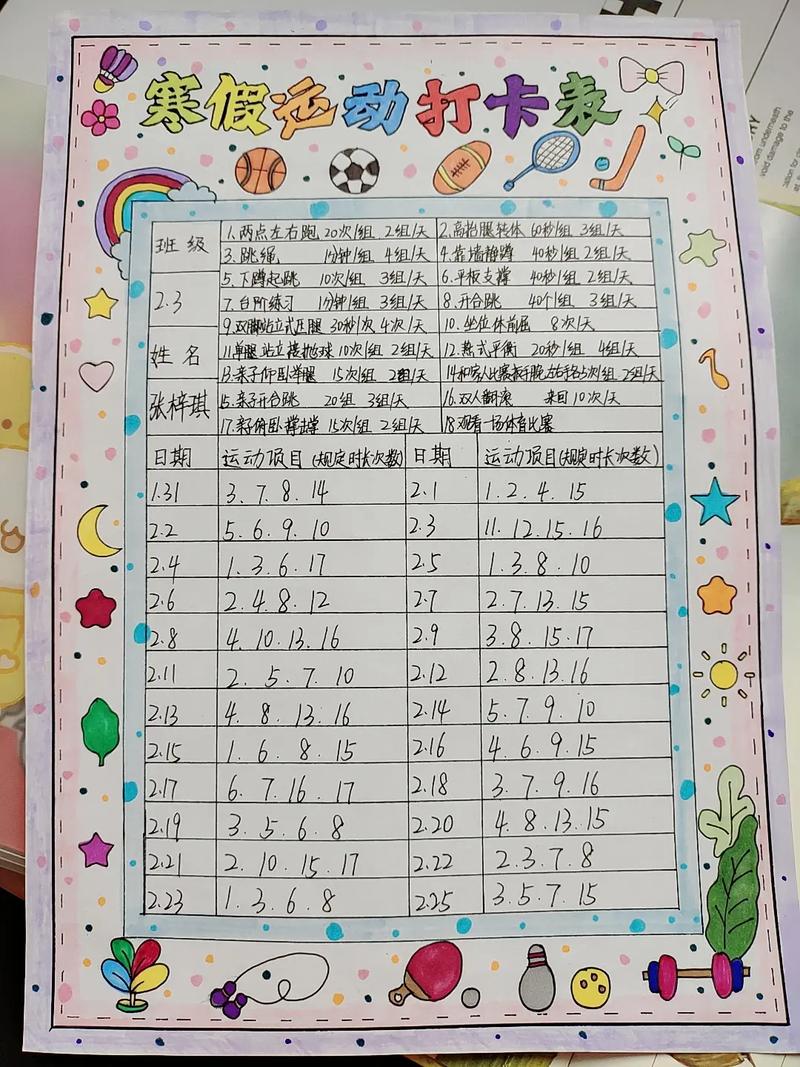 寒假运动打卡表
班级
1.两点左右跑 20次/组 2组/天 2.高抬腿转体 60秒/组 3组/天
3.跳绳 1分钟/组 4组/天 4.靠墙静蹲 40秒/组 2组/天
2.3
5.下蹲起跳 10次/组 3组/天 6.平板支撑 40秒/组 2组/天
7.台阶练习 1分钟/组 3组/天 8.开合跳 40个/组 3组/天
9.双脚站立式压腿 30秒/次 4次/天 10.坐位体前屈 8次/天
姓名
11.单腿站立接抛球 10次/组 2组/天 12.燕式平衡 20秒/组 4组/天
13.亲子仰卧举腿 15次/组 2组/天 14.和家人比赛扳手腕左右手各5次/组 2组/天
张梓琪
15.亲子开合跳 20组 3组/天 16.双人翻滚 来回10次/天
17.亲子俯卧撑击掌 15次/组 2组/天 18.观看一场体育比赛
日期 运动项目(规定时长次数) 日期 运动项目(规定时长次数)
1.31 3.7.8.14 2.1 1.2.4.15
2.2 5.6.9.10 2.3 11.12.15.16
2.4 1.3.6.17 2.5 1.3.8.10
2.6 2.4.8.12 2.7 2.7.13.15
2.8 4.10.13.16 2.9 3.8.15.17
2.11 2.5.7.10 2.12 2.8.13.16
2.13 4.8.13.16 2.14 5.7.9.10
2.15 1.6.8.15 2.16 4.6.9.15
2.17 6.7.16.17 2.18 3.7.9.16
2.19 3.5.6.8 2.20 4.8.13.15
2.21 2.10.15.17 2.22 2.3.7.8
2.23 1.3.6.8 2.25 3.5.7.15